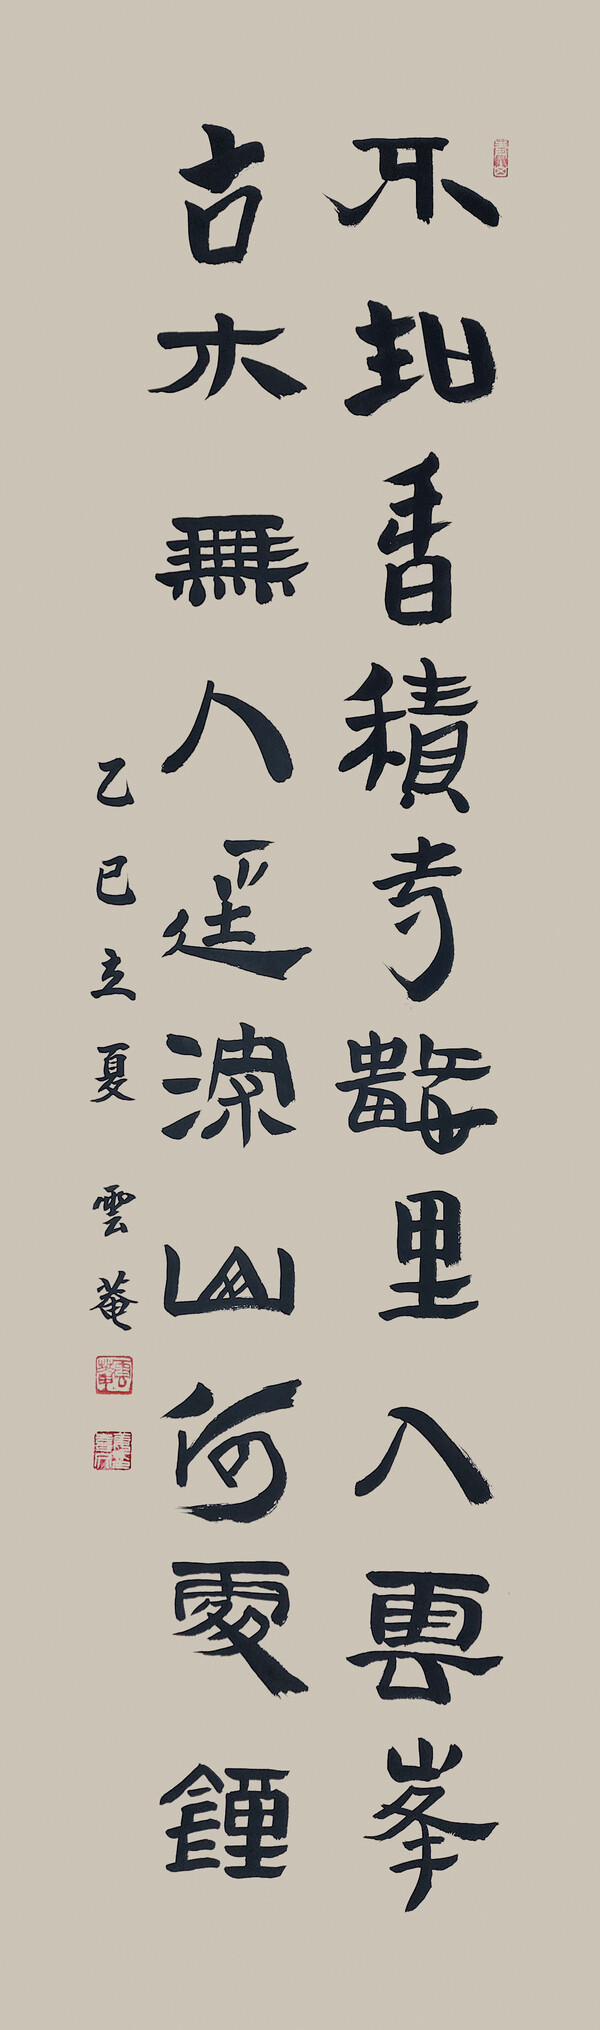 不知香積寺數里入雲峯
古木無人逕深山何處鍾
乙巳立夏 雲菴